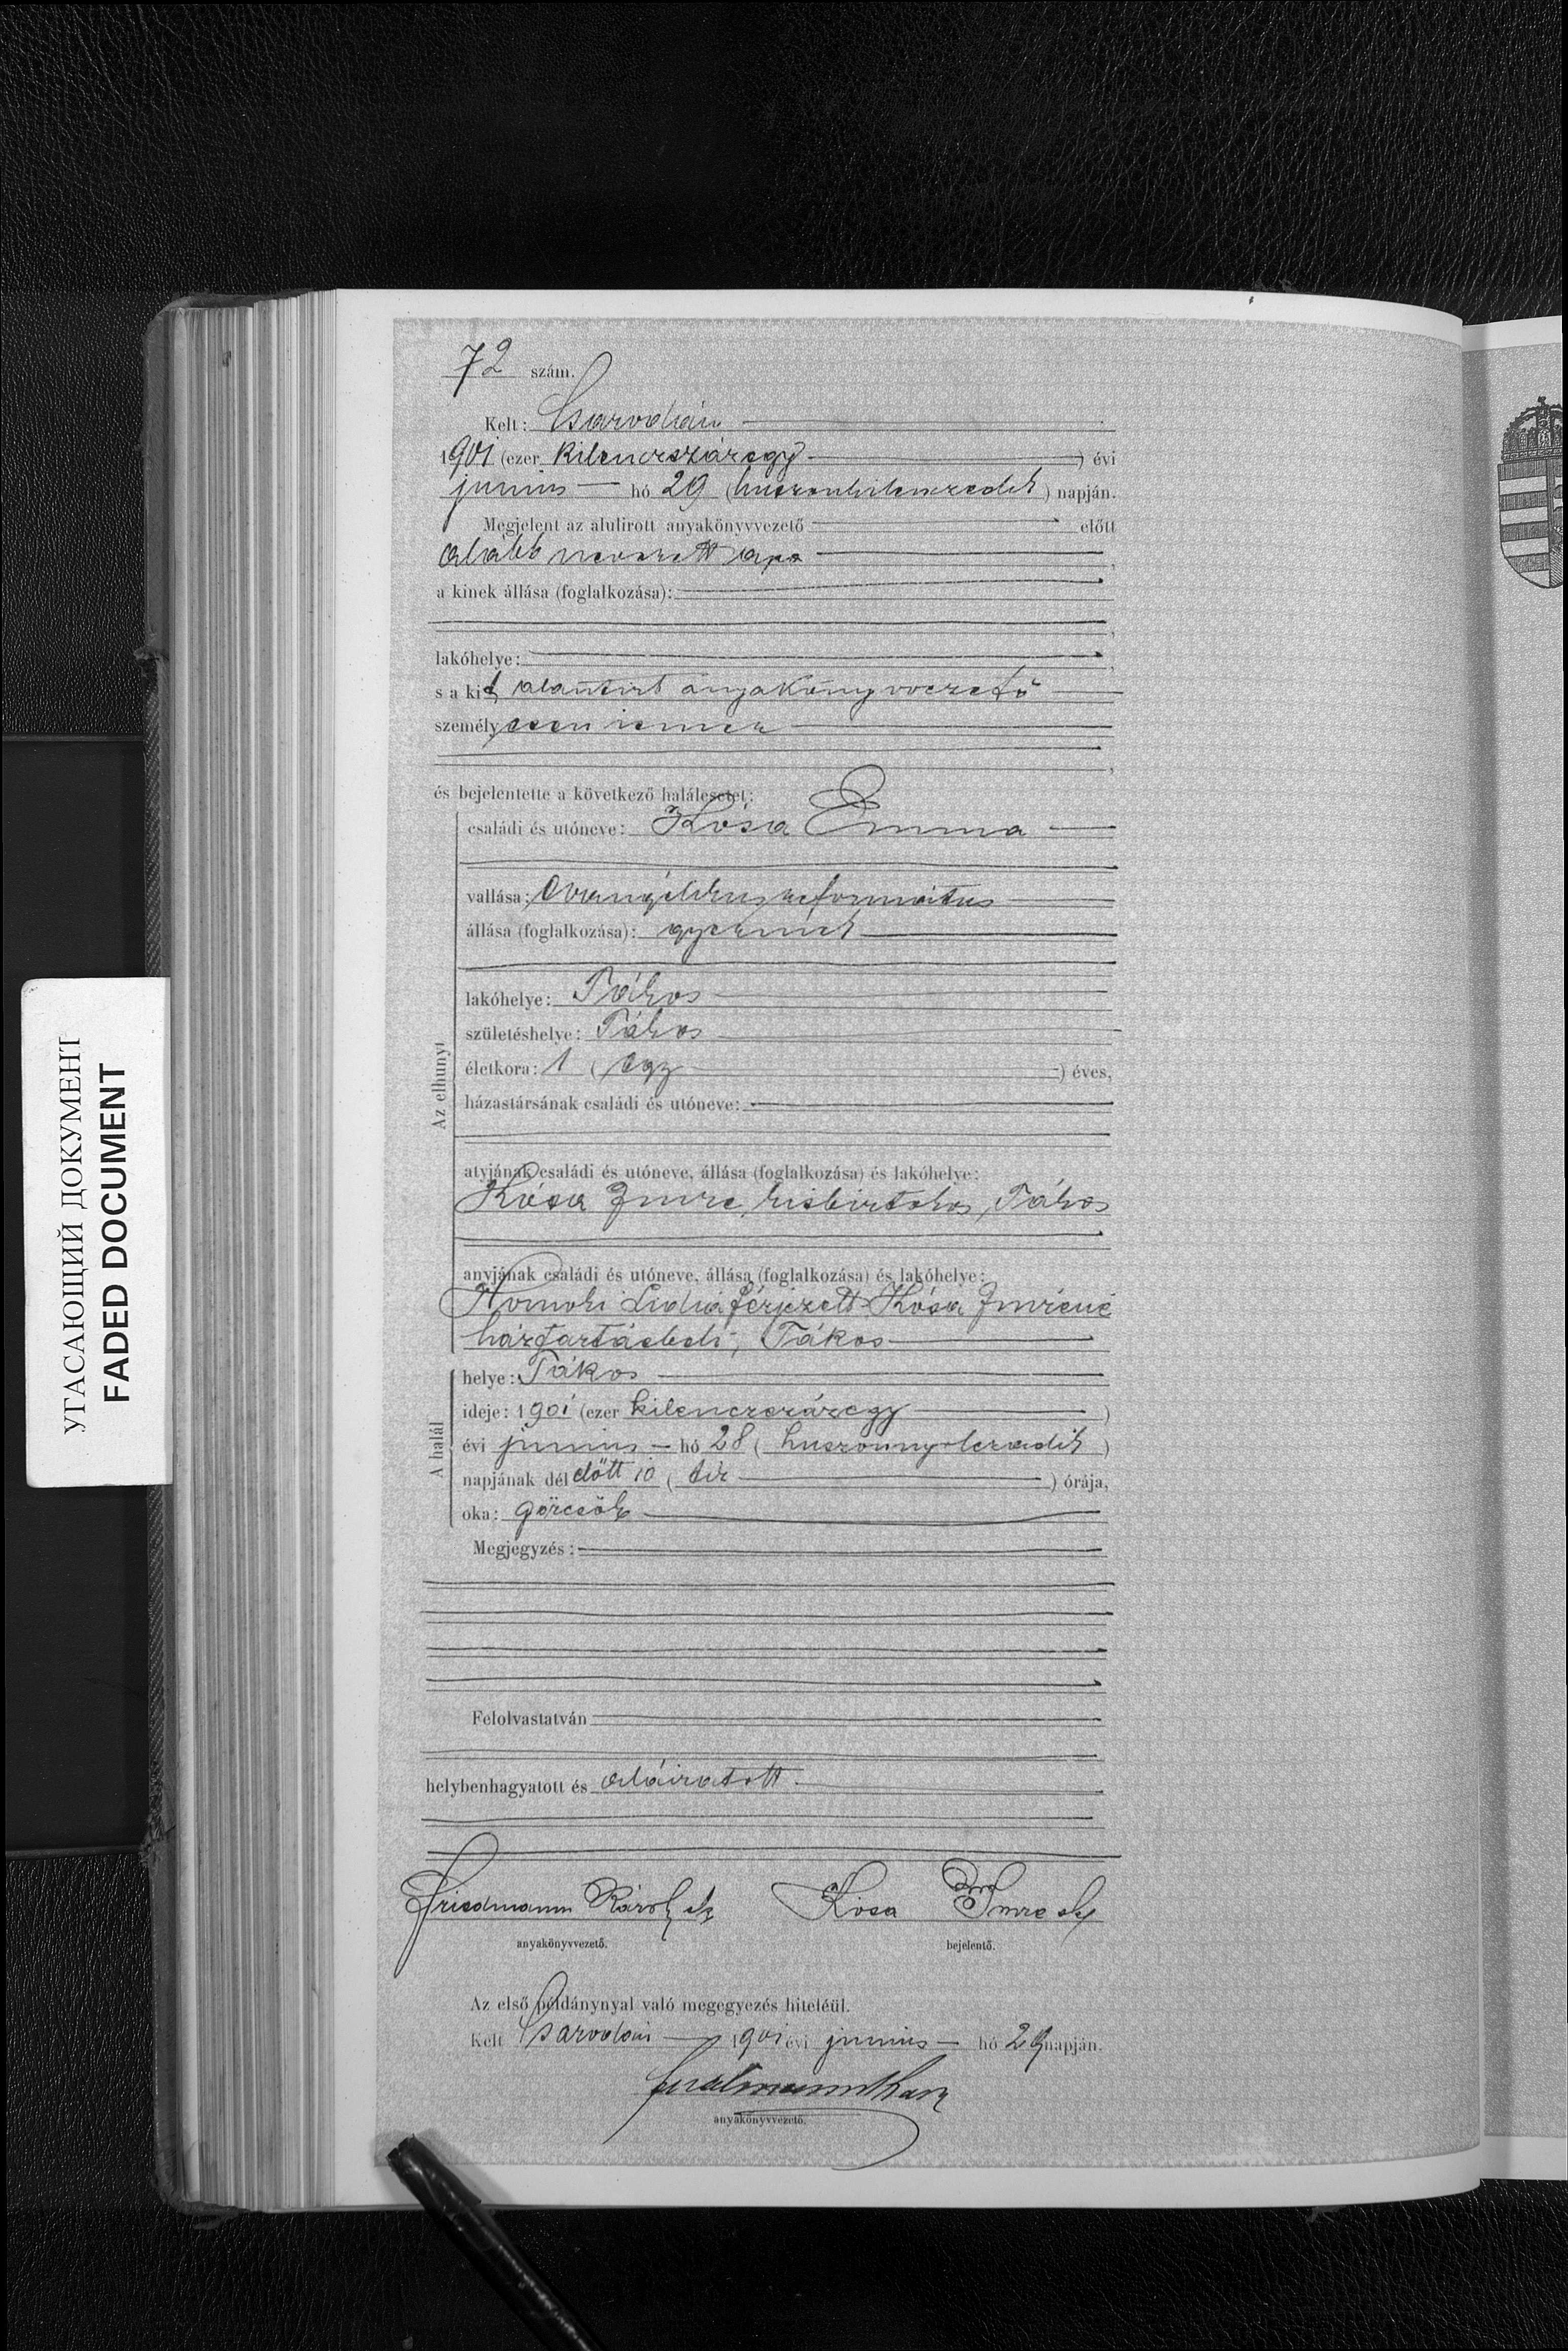 72 szám.
Kelt: Csarodán
1901 (ezer kilenczszázegy) évi
junius hó 29 (huszonkilenczedik) napján.
Megjelent az alulirott anyakönyvvezető előtt
alább nevezett apa,
a kinek állása (foglalkozása):
lakóhelye:
s a kit alantirt anyakönyvvezető
személyesen ismer
és bejelentette a következő halálesetet:
Az elhunyt
családi és utóneve: Kósa Emma
vallása: evangélikus református
állása (foglalkozása): gyermek
lakóhelye: Tákos
születéshelye: Tákos
életkora: 1 (egy) éves,
házastársának családi és utóneve:
atyjának családi és utóneve, állása (foglalkozása) és lakóhelye:
Kósa Imre, kisbirtokos, Tákos
anyjának családi és utóneve, állása (foglalkozása) és lakóhelye:
Komoki Lidia férjezett Kósa Imréné
háztartásbeli, Tákos
A halál
helye: Tákos
ideje: 1901 (ezer kilenczszázegy)
évi junius hó 28 (huszonnyolczadik)
napjának délelőtt 10 (tíz) órája,
oka: görcsök
Megjegyzés:
Felolvastatván
helybenhagyatott és aláiratott
Friedmann Károly sk Kósa Imre sk
anyakönyvvezető. bejelentő.
Az első példánynyal való megegyezés hiteléül.
Kelt Csarodán 1901 évi junius hó 29 napján.
anyakönyvvezető.
УГАСАЮЩИЙ ДОКУМЕНТ
FADED DOCUMENT